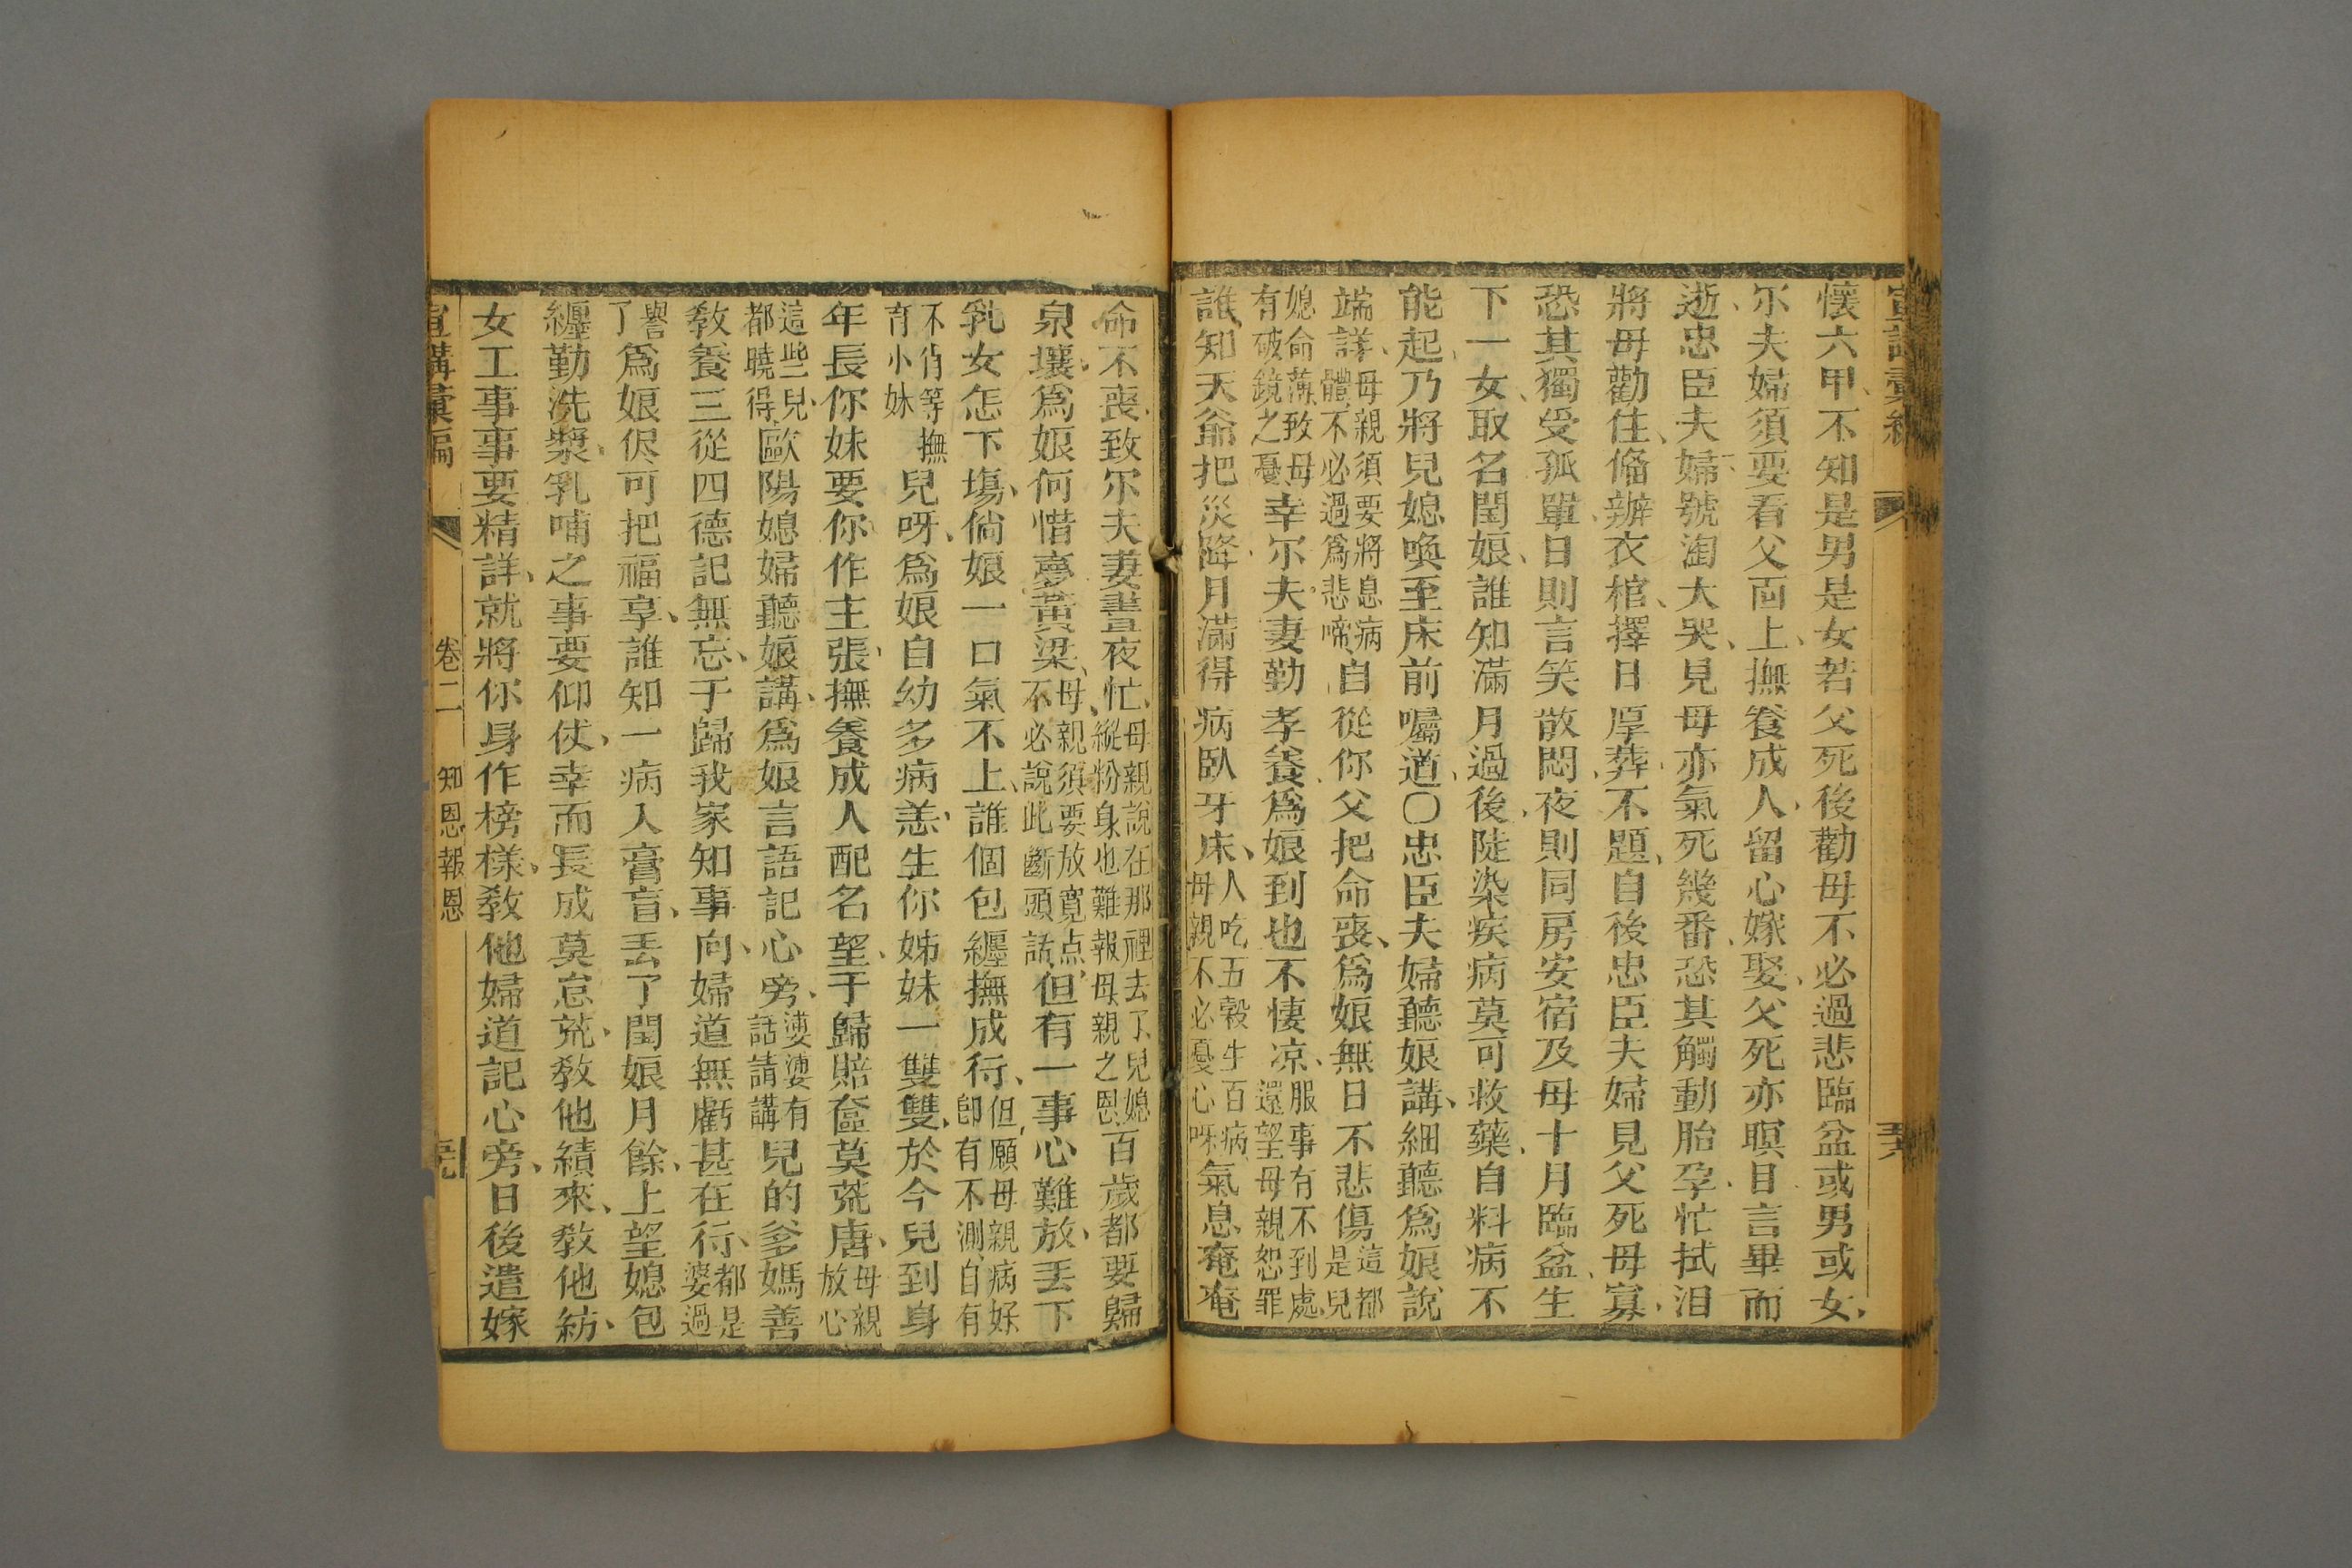 懷六甲、不知是男是女若父死後勸毋不必過悲臨盆或男或女、
尓夫婦須要看父面上、撫養成人、留心嫁娶、父死亦瞑目言畢而
逝、忠臣夫婦號淘大哭、見毋亦氣死幾番、恐其觸動胎孕、忙拭泪
將毋勸住、俻辦衣棺、擇日厚葬、不題、自後忠臣夫婦見父死毋寡、
恐其獨受孤單、日則言笑散悶、夜則同房安宿及毋十月臨盆、生
下一女、取名閏娘、誰知滿月過後、陡染疾病莫可救藥、自料病不
能起、乃將兒媳喚至床前囑道、〇忠臣夫婦聽娘講、細聽爲娘說
端詳、毋親須要將息病體、不必過爲悲啼、自從你父把命喪、爲娘無日不悲傷這都是兒
媳命薄、致毋有破鏡之憂、幸尓夫妻勤孝養、爲娘到也不悽凉、服事有不到處、還望毋親恕罪
誰知天爺把災降、月滿得病臥牙床、人吃五穀生百病、毋親不必憂心呀氣息奄奄
命不喪、致尓夫妻晝夜忙、毋親說在那裡去了、兒媳縱粉身也難報毋親之恩百歲都要歸
泉壤、爲娘何惜夢黃梁、毋親須要放寬点、不必說此斷頭話、但有一事心難放、丟下
乳女怎下塲、倘娘一口氣不上、誰個包纒撫成行、但願毋親病好、卽有不測、自有
不肖等撫育小妹兒呀、爲娘自幼多病恙、生你姊妹一雙雙、於今兒到身
年長你妹要你作主張、撫養成人配名望、于歸賠奩莫荒唐、毋親放心
這些兒、都曉得、歐陽媳婦聽娘講、爲娘言語記心旁、婆婆有話請講兒的爹媽善
教養三從四德記無忘、于歸我家知事向、婦道無虧甚在行、都是婆過
譽了爲娘侭可把福享、誰知一病入膏肓、丟了閏娘月餘、上望媳包
纒勤洗漿、乳哺之事要仰仗、幸而長成莫怠荒、教他績來、教他紡、
女工事事要精詳、就將你身作榜樣、教他婦道記心旁、日後遣嫁
宣講彙編
卷二
知恩報恩